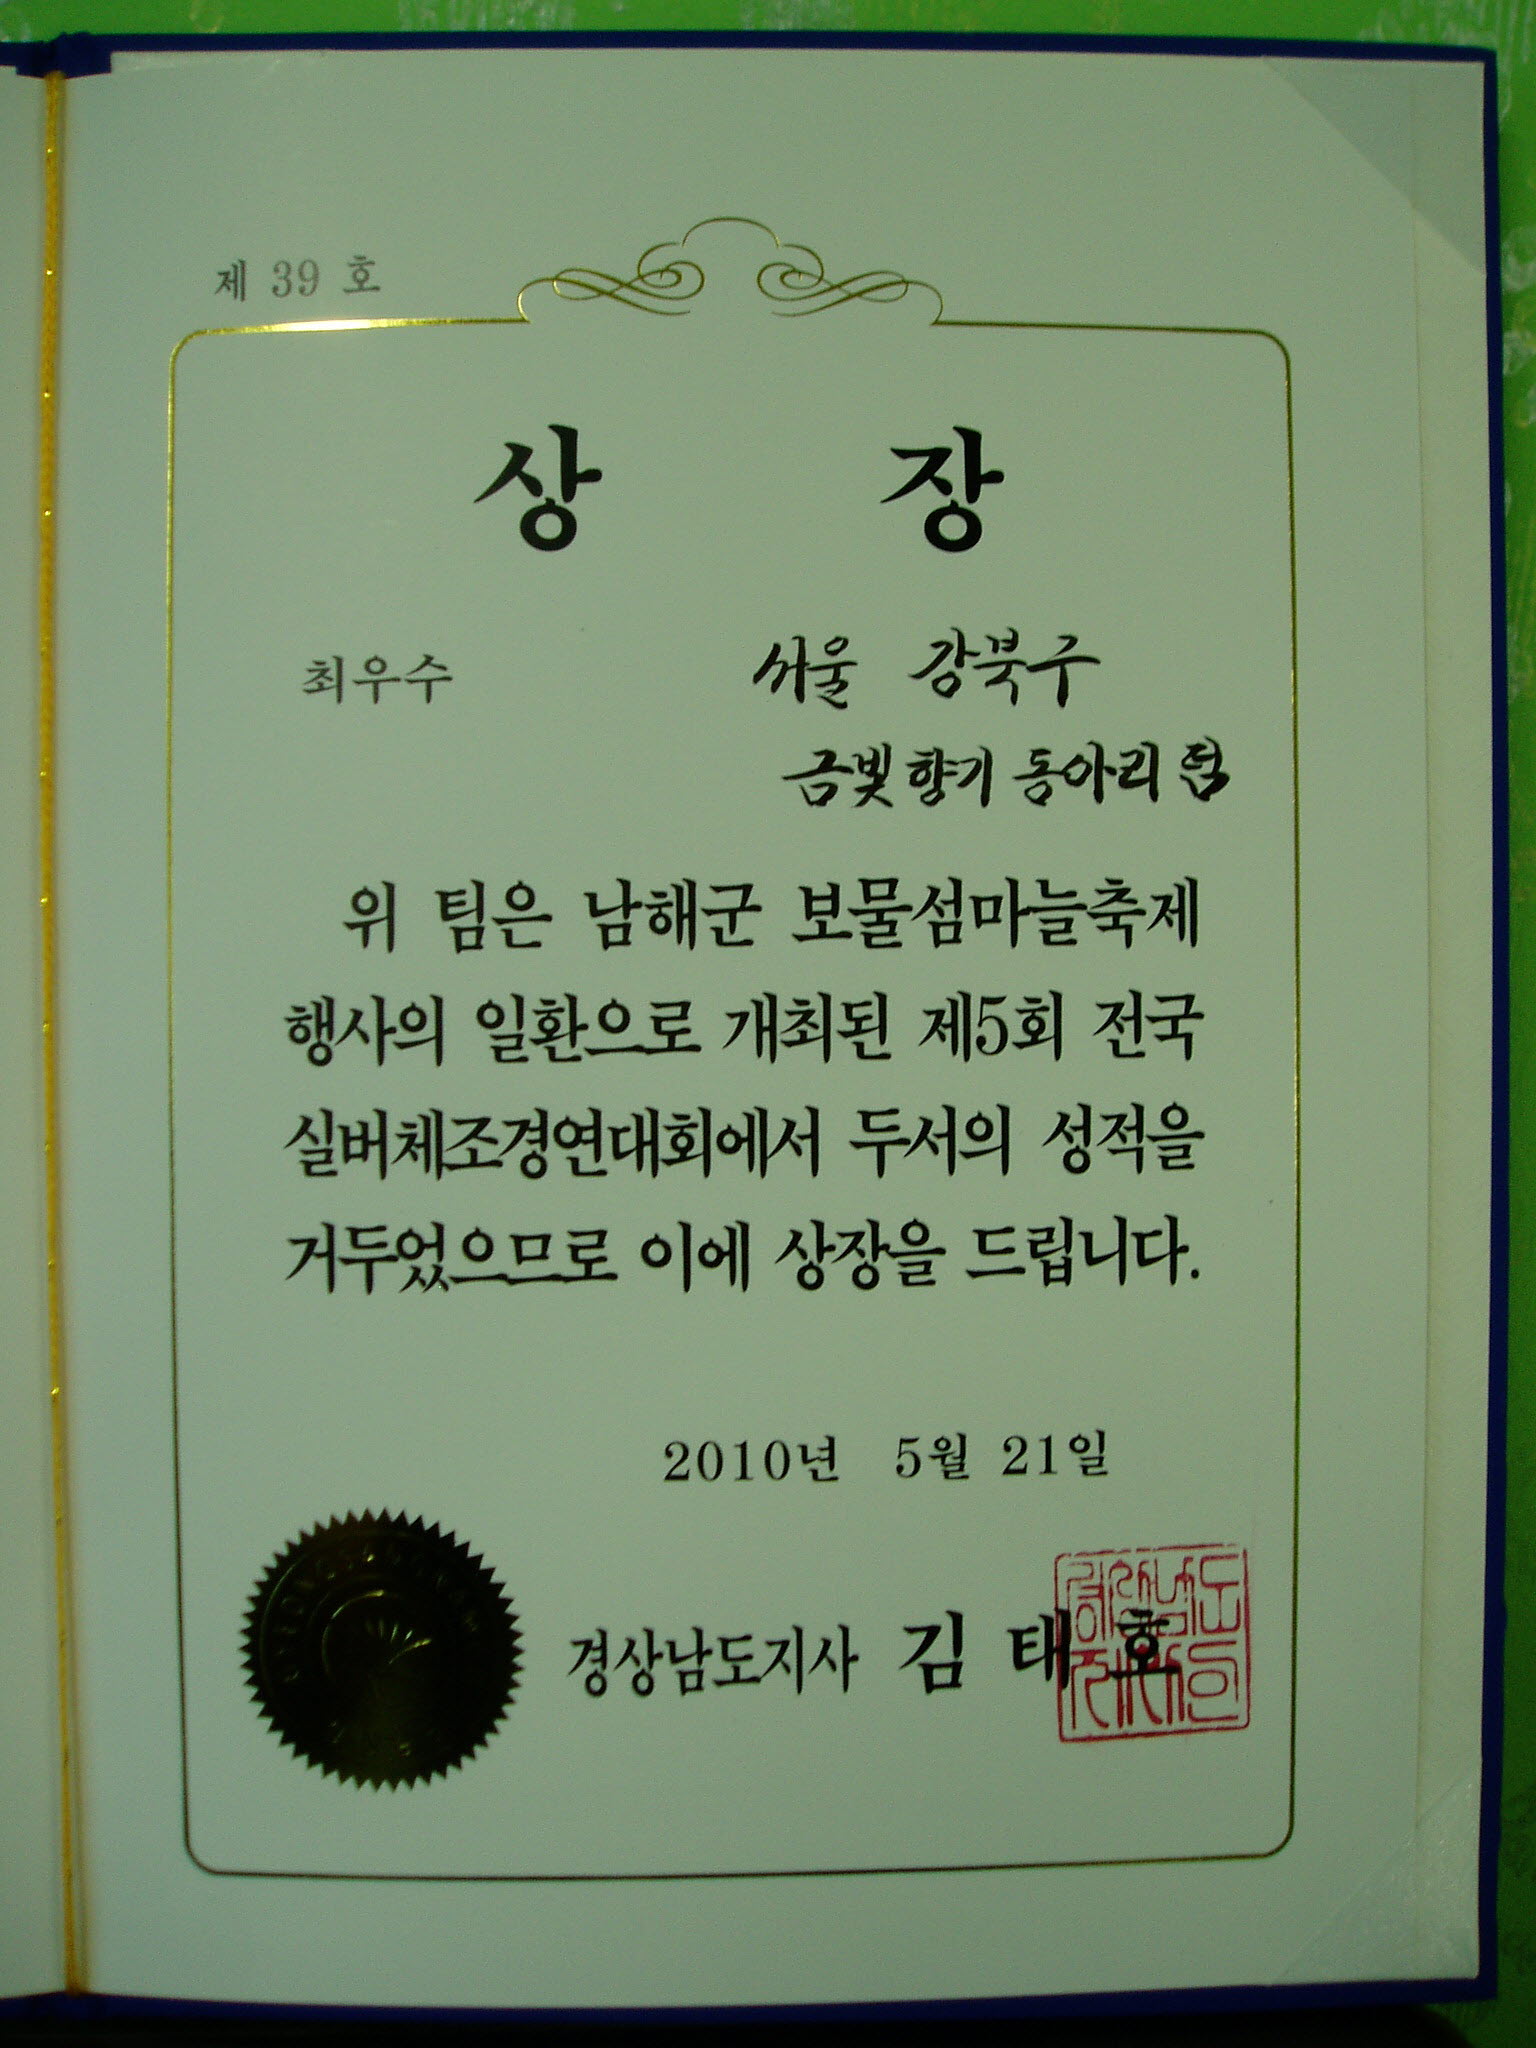 제 39 호
상 장
최우수
서울 강북구
금빛향기 동아리 팀
위 팀은 남해군 보물섬마늘축제
행사의 일환으로 개최된 제5회 전국
실버체조경연대회에서 두서의 성적을
거두었으므로 이에 상장을 드립니다.
2010년 5월 21일
경상남도지사 김 태 호